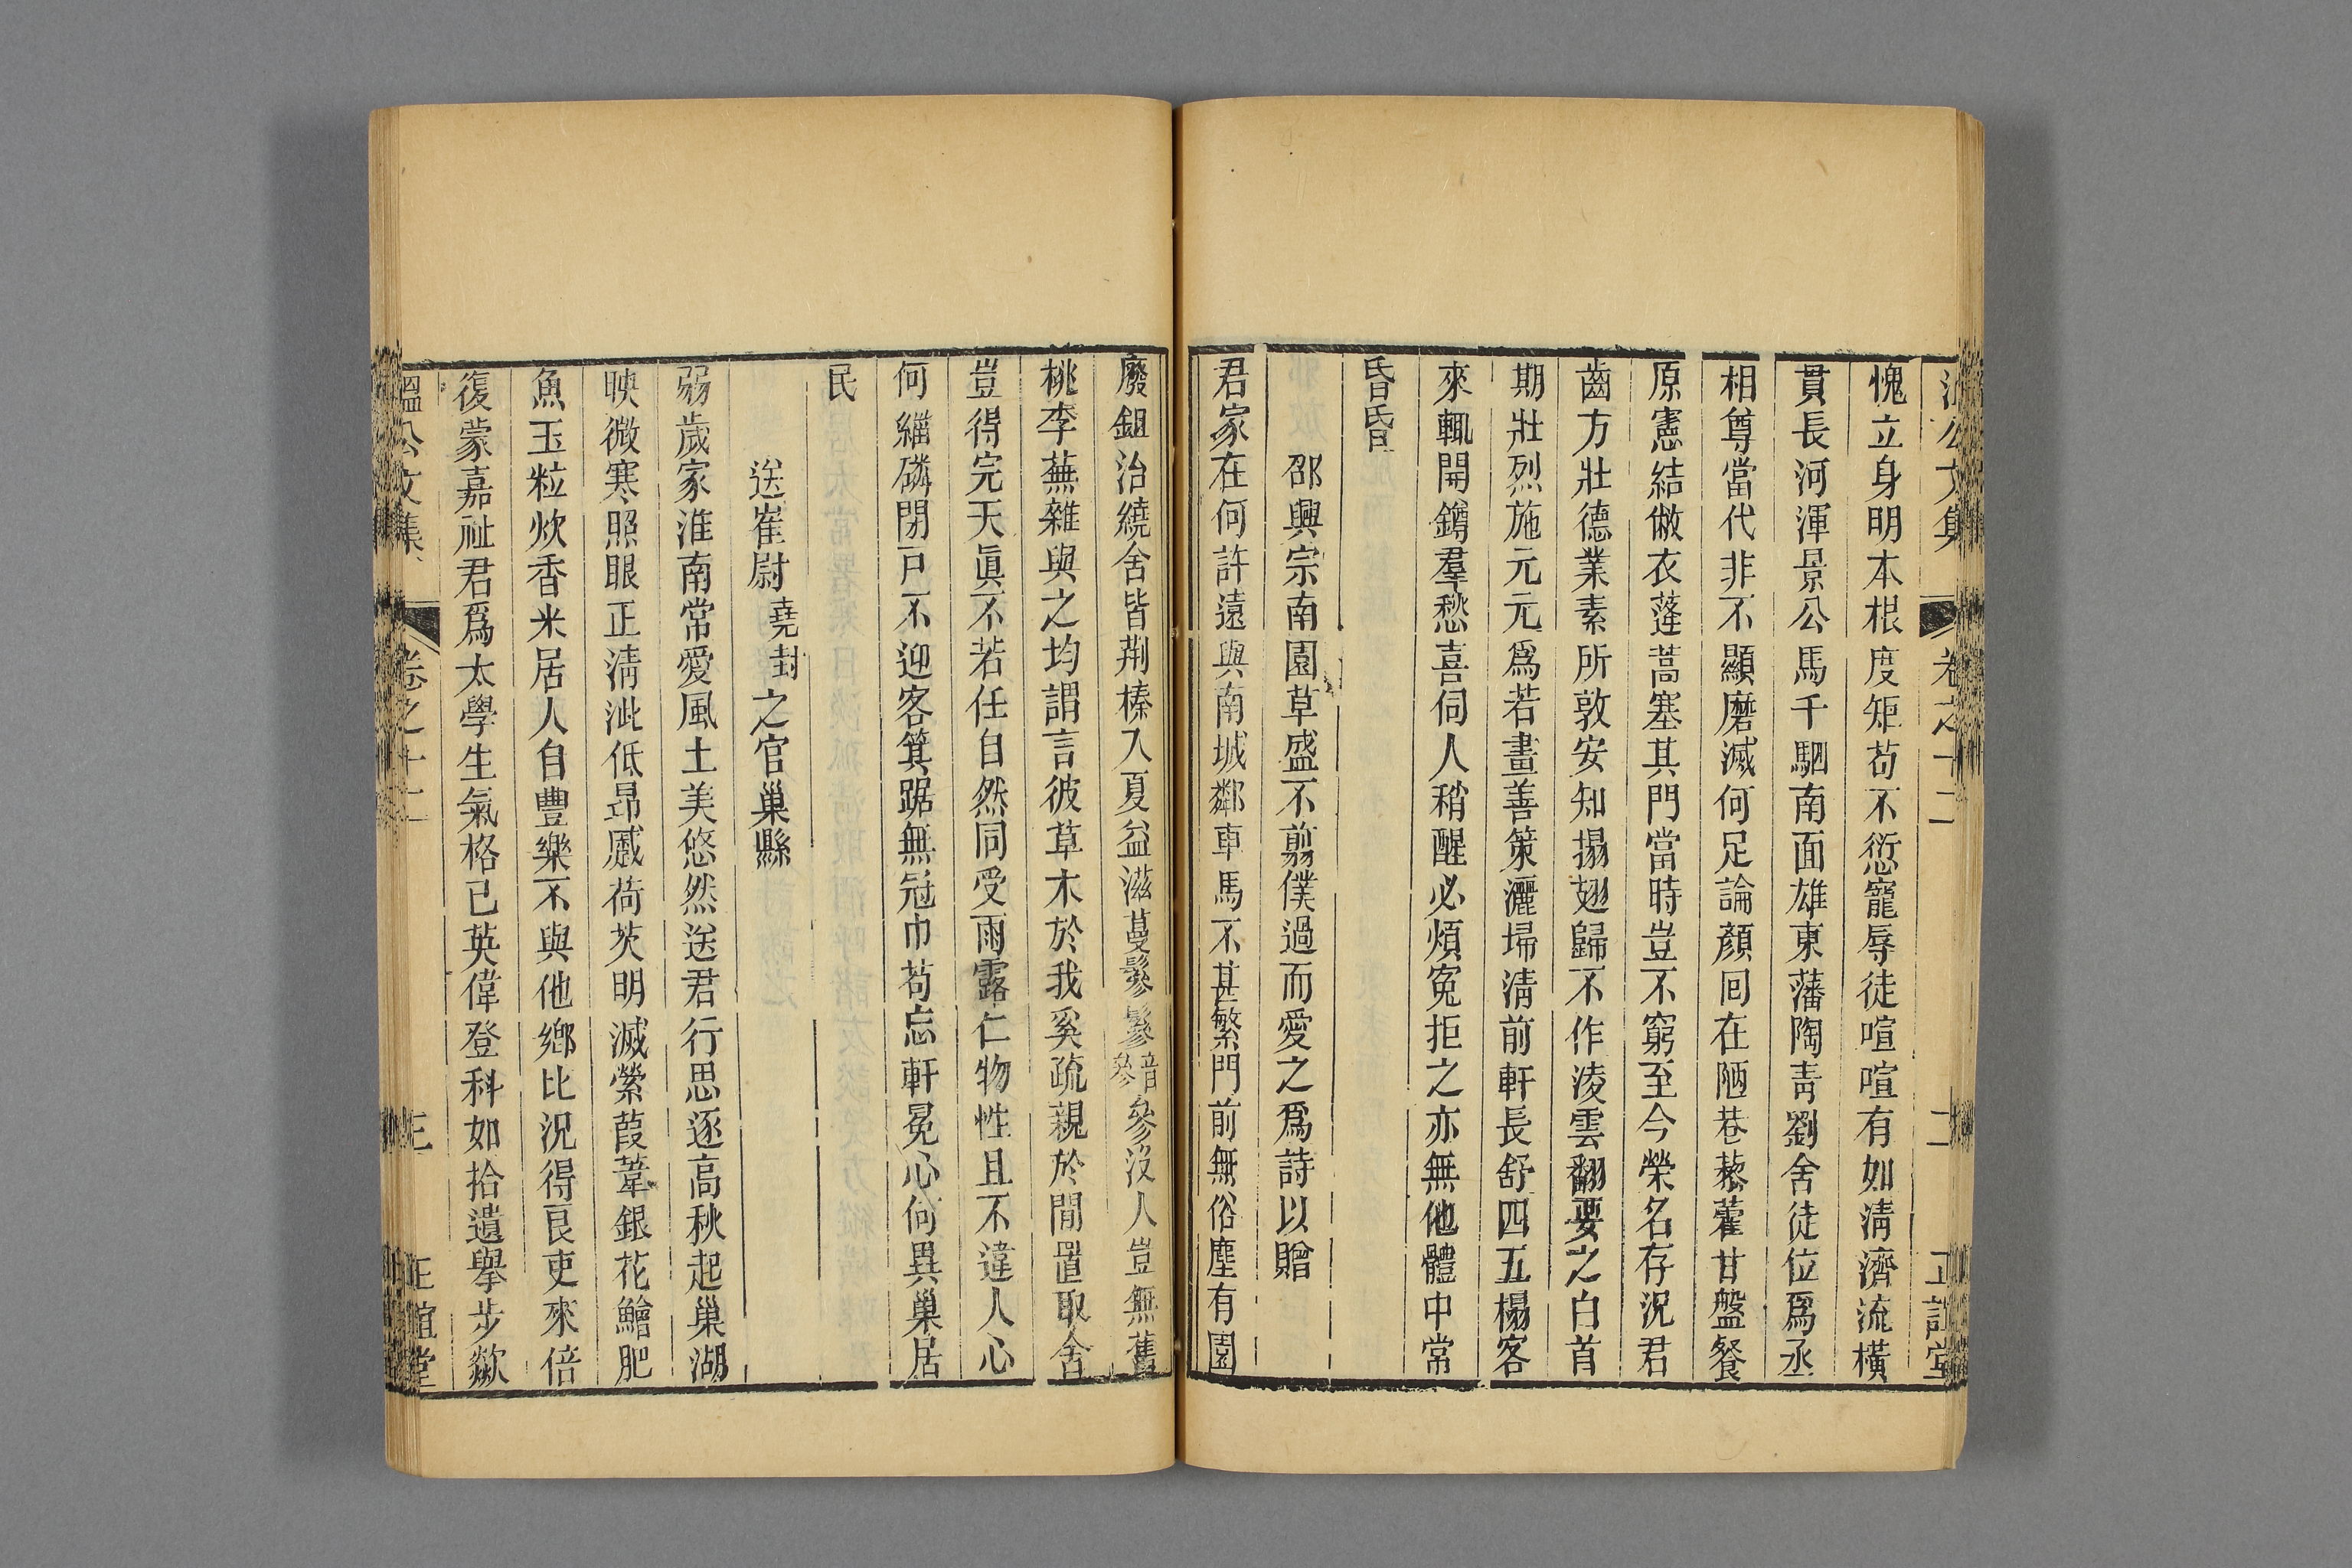 溫公文集 卷之十二 二 正誼堂
愧立身明本根度矩苟不愆寵辱徒喧喧有如淸濟流橫
貫長河渾景公馬千駟南面雄東藩陶靑劉舍徒位爲丞
相尊當代非不顯磨滅何足論顏回在陋巷藜藿甘盤餐
原憲結僘衣蓬蒿塞其門當時豈不窮至今榮名存況君
齒方壯德業素所敦安知搨翅歸不作凌雲翻要之白首
期壯烈施元元爲若畫善策灑埽淸前軒長舒四五榻客
來輒開鐏羣愁喜伺人稍醒必煩寃拒之亦無他體中常
昬昬
邵興宗南園草盛不翦僕過而愛之爲詩以贈
君家在何許遠與南城鄰車馬不甚繁門前無俗塵有園
廢鉏治繞舍皆荆榛入夏益滋蔓鬖鬖音參參沒人豈無舊
桃李蕪雜與之均謂言彼草木於我奚疏親於閒置取舍
豈得完天眞不若任自然同受雨露仁物性且不違人心
何緇磷閉戸不迎客箕踞無冠巾苟忘軒冕心何異巢居
民
送崔尉堯封之官巢縣
弱歲家淮南常愛風土美悠然送君行思逐高秋起巢湖
映微寒照眼正淸泚低昂蔪荷芡明滅縈葭葦銀花鱠肥
魚玉粒炊香米居人自豐樂不與他鄉比況得良吏來倍
復蒙嘉祉君爲太學生氣格已英偉登科如拾遺舉步歘
溫公文集 卷之十二 三 正誼堂